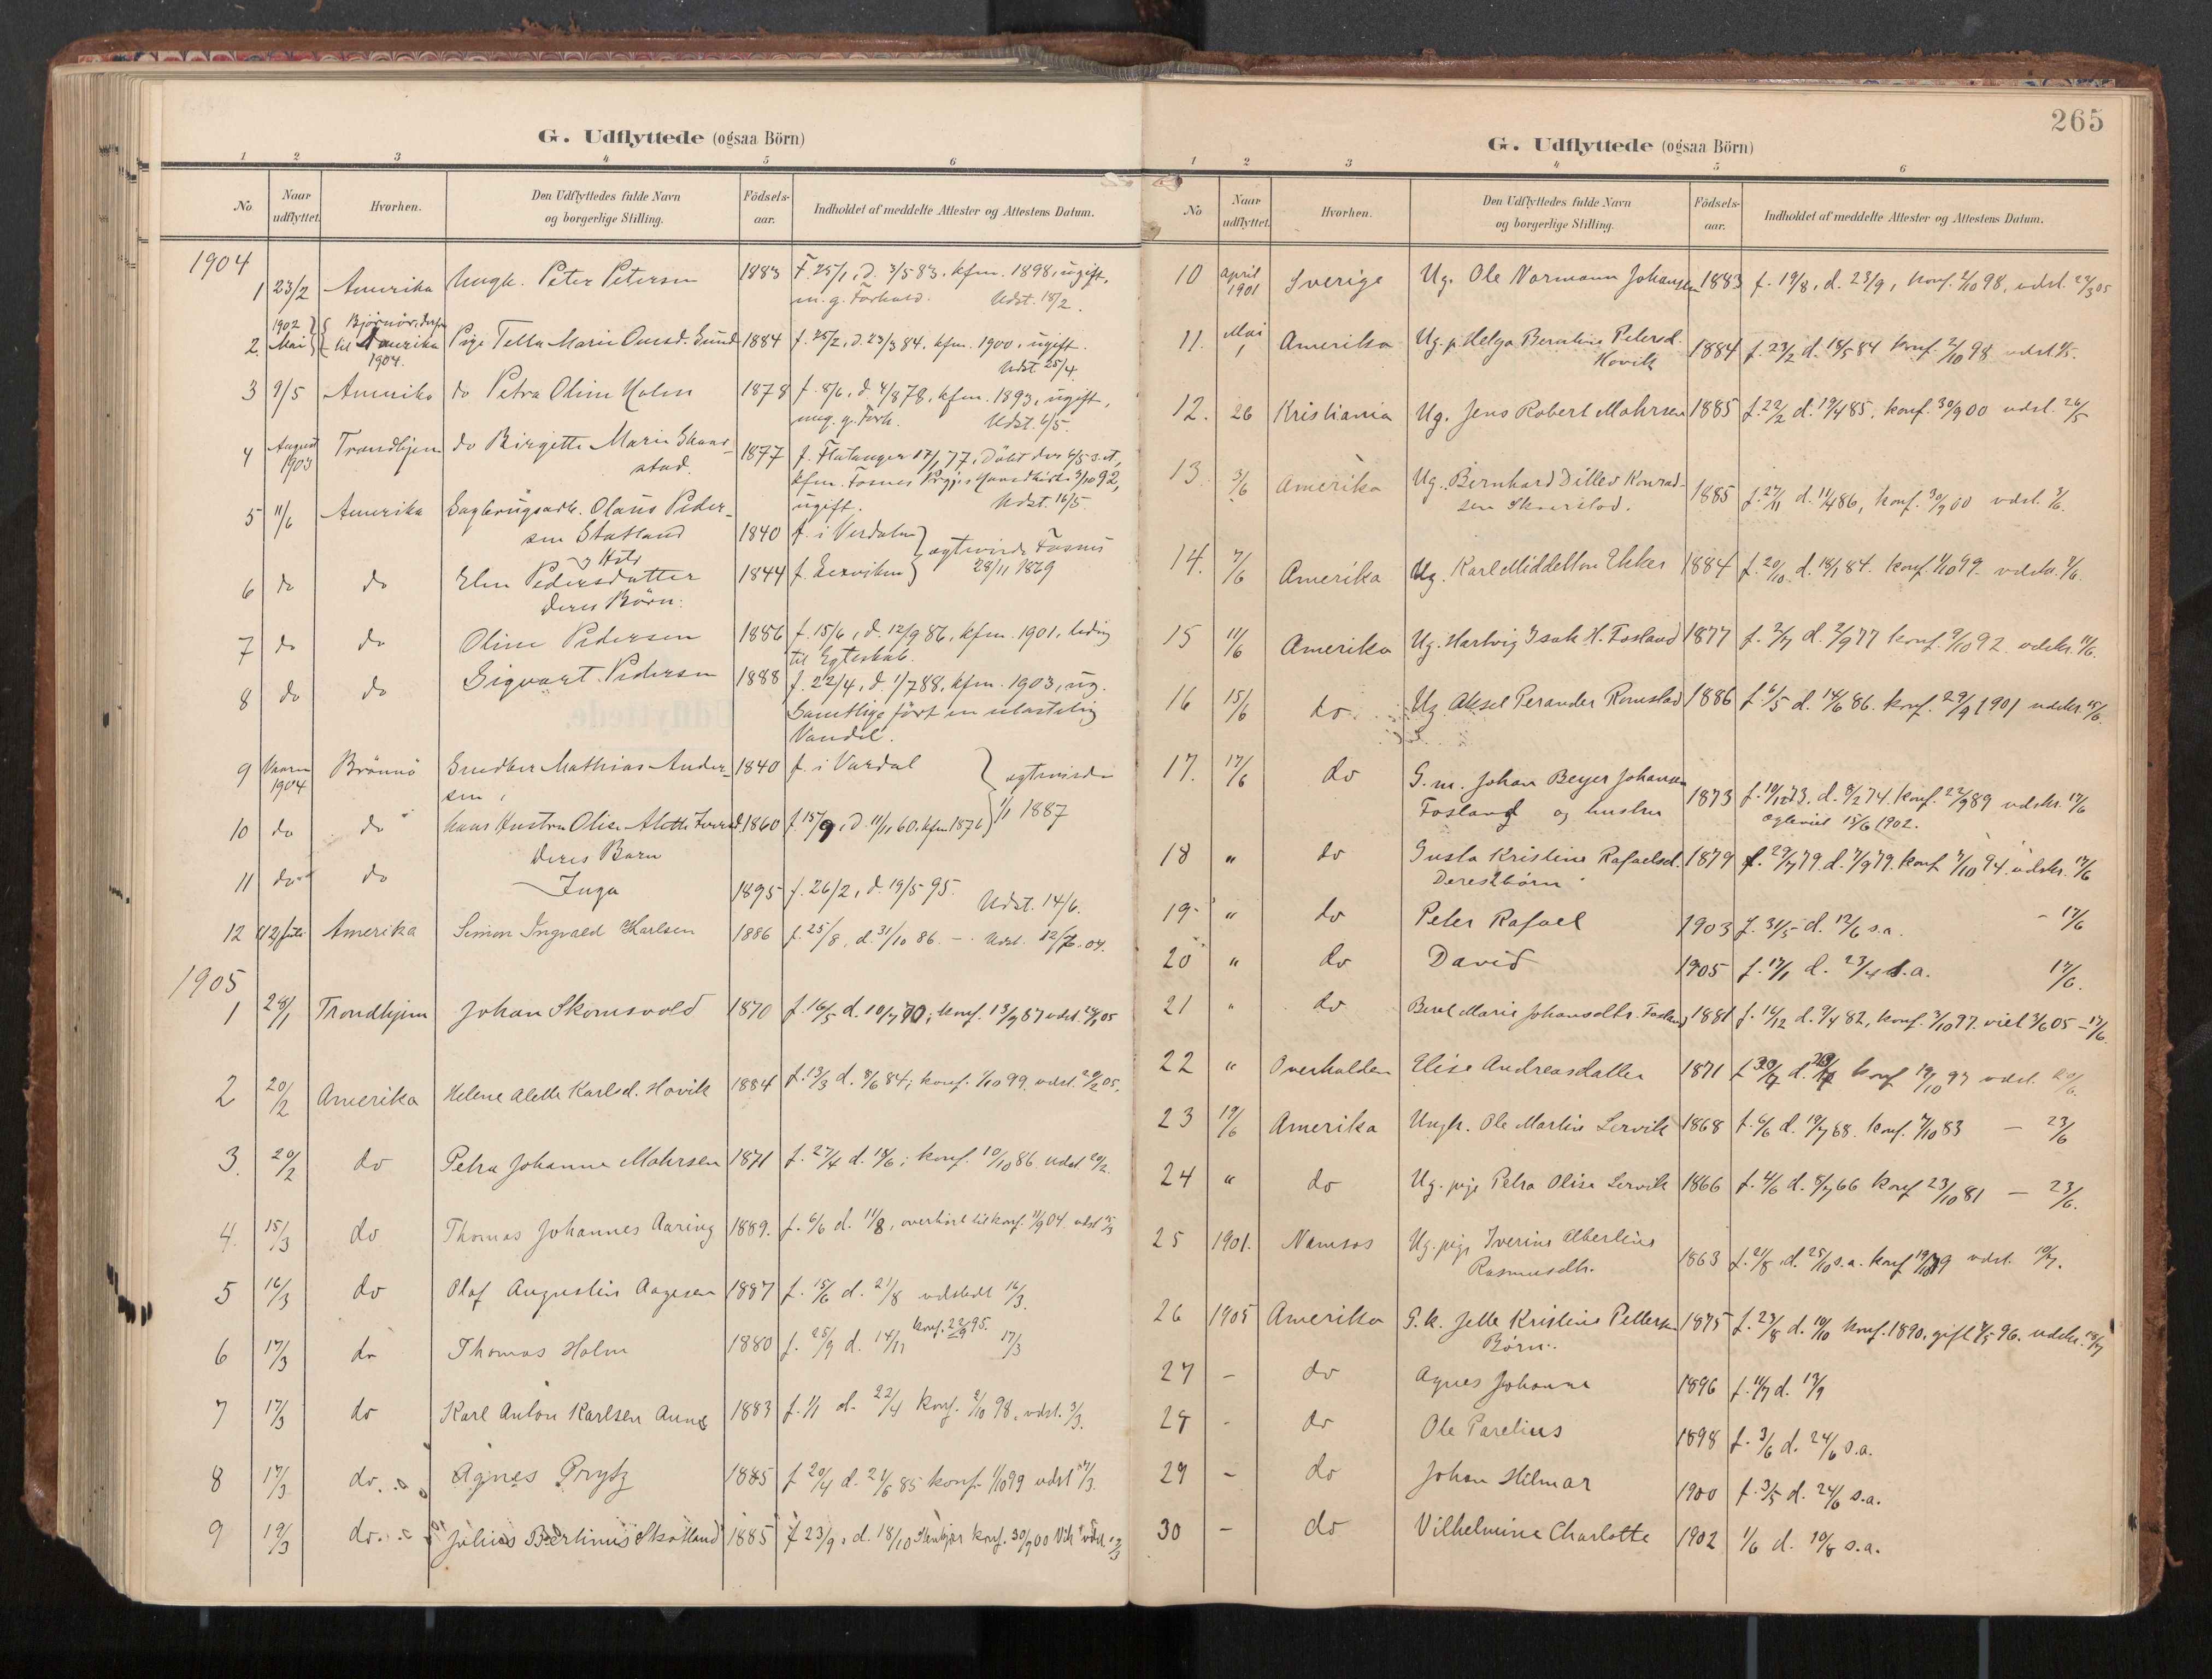 G. Udflyttede (ogsaa Börn)
1 2 3 4 5 6
No. Naar udflyttet. Hvorhen. Den Udflyttedes fulde Navn og borgerlige Stilling. Födsels-aar. Indholdet af meddelte Attester og Attestens Datum.
1904
1 23/2 Amerika Ungk. Peter Petersen 1883 F. 25/1, d. 3/5 83, kfm. 1898, ugift,
m. g. Forhold. Udst. 18/2.
2. 1902 Mai Bjørnør, derfra til Amerika 1904. Pige Tella Marie Sund 1884 f. 25/2, d. 23/3 84, kfm. 1900, ugift.
Udst. 25/4.
3 9/5 Amerika do Petra Oline Holm 1878 f. 8/6, d. 4/8 78, kfm. 1893, ugift,
Udst. 6/5.
4 August 1903 Trondhjem do Birgitte Marie Skaar-
stad. 1877 f. Flatanger 17/1 77, Döbt der 6/5 s.a.,
kfm. Fosnes 3/10 92,
ugift. Udst. 16/5.
5 11/6 Amerika Sagbrugsarb. Olaus Peder-
sen Statland 1840 f. i Verdalen
og Hstr
6 do do Elen Pedersdatter 1844 f. Lexviken } ægtevirde Fosnes 28/11 1869
deres Börn:
7 do do Oline Pedersen 1886 f. 15/6, d. 12/9 86, kfm. 1901, ledig
til Egteskab.
8 do do Sigvart Pedersen 1888 f. 22/4, d. 1/7 88, kfm. 1903, ug.
Samtlige fört en ulastelig
Vandel.
9 Vaaren 1904 Brönnö Snedker Mathias Ander-
sen, 1840 f. i Vardal } ægteviede
10 do do hans Hustru Olise Alette 1860 f. 15/9, d. 11/11 60, kfm 1876 } 1/1 1887
deres Barn
11 do do Inga 1895 f. 26/2, d. 19/5 95. Udst. 14/6.
12 12 juli Amerika Simon Ingvald Karlsen 1886 f. 25/8, d. 31/10 86. – Udst. 12/7. 04.
1905
1 28/1 Trondhjem Johan Skomsvold 1870 f. 16/5 d. 10/7 70; konf. 13/9 87 udst. 28/1 05
2 20/2 Amerika Helene Alette Karlsd. Hovik 1884 f. 13/3 d. 8/6 84; konf. 1/10 99. udst. 20/2 05.
3. 20/2 do Petra Johanne Mohrsen 1871 f. 27/4 d. 18/6; konf. 10/10 86. udst 20/2.
4. 15/3 do Thomas Johannes Aaring 1889. f. 6/6 d. 11/8, overhört til konf. 11/9 04. udst 15/3
5 16/3 do Olaf Augustin Aagesen 1887 f. 15/6 d. 21/8 udstedt 16/3.
6 17/3 do Thomas Holm 1880 f. 25/9 d. 14/11 konf. 22/9 95. 17/3
7 17/3 do Karl Anton Karlsen Aune 1883 f. 1/1 d. 22/4 konf. 2/10 98, udst. 3/3.
8 17/3 do. Agnes Prytz 1885 f 20/4 d. 21/6 85 konf. 1/10 99 udst 17/3.
9 19/3 do. Julius Bertinius Skotland 1885 f 23/9, d. 18/10 konf. 30/9 00 Vik udst.
265
G. Udflyttede (ogsaa Börn)
1 2 3 4 5 6
No Naar udflyttet. Hvorhen. Den Udflyttedes fulde Navn og borgerlige Stilling. Födsels-aar. Indholdet af meddelte Attester og Attestens Datum.
10 april 1901 Sverige Ug. Ole Normann Johansen 1883 f. 19/8, d. 23/9, konf. 2/10 98, udst. 27/3 05
11. Mai 1 Amerika Ug. p. Helga Berntine Petersd.
Hovik 1884 f. 23/2 d. 18/5 84 konf. 2/10 98 udst. 1/5.
12. 26 Kristiania Ug. Jens Robert Mohrsen 1885 f. 22/2 d. 19/4 85. konf. 30/9 00 udst. 26/5
13. 3/6 Amerika Ug. Bernhard Ditlev Konrad-
sen Skaerstad. 1885 f. 27/11 d. 11/4 86, konf. 30/9 00 udst. 3/6.
14. 7/6 Amerika Ug. Karl Middelthon Ekker 1884 f. 20/10. d. 18/1 84. konf. 1/10 99. udstr. 7/6.
15 11/6 Amerika Ug. Hartvig Isak H. Fosland 1877 f. 2/7 d. 2/9 77 konf. 9/10 92. udstr. 11/6.
16 15/6 do. Ug. Aksel Perander Romstad 1886 f. 6/5 d. 14/6 86. konf. 29/9 1901 udstr. 15/6.
17. 17/6 do G. m. Johan Beyer Johansen
Fosland og hustru 1873 f. 10/12 73. d. 8/2 74. konf. 22/9 89 udstr. 17/6
egteviet 15/6 1902.
18 " do Gusta Kristine Rafaelsd. 1879 f. 29/7 79. d. 7/9 79. konf. 7/10 94. udstr. 17/6
Deres börn
19 " do Peter Rafael 1903 f. 31/5 d. 12/6 s.a. - 17/6
20 " do David 1905 f. 17/1 d. 23/4 s.a. 17/6.
21 " do Beret Marie Johansdtr. Fosland 1881 f. 16/12 d. 9/4 82, konf. 3/10 97. viet 3/6 05 – 17/6.
22 " Overhalden Elise Andreasdatter 1871 konf 19/10 97 udst. 20/6.
23 19/6 Amerika Ungk. Ole Martin Lervik 1868 f. 6/6 d. 19/7 68. konf. 7/10 83 – 23/6
24 " do Ug. pige Petra Olise Lervik 1866 f. 4/6 d. 8/7 66 konf 23/10 81 – 23/6.
25 1901. Namsos Ug. pige Iverine Albertine
Rasmusdtr. 1863 f. 21/8, d. 25/10 s.a. konf 79 udst. 10/7.
26 1905 Amerika G. k. Jette Kristine Pettersen 1875 f. 23/8 d. 10/10 konf. 1890, gift 96. udstr. 18/7
Börn.
27 – do Agnes Johanne 1896 f. 11/7 d. 13/9
28 - do Ole Parelius 1898 f. 3/6 d. 24/6 s.a.
29 – do Johan Hilmar 1900 f. 3/5 d. 24/6 s.a.
30 – do Vilhelmine Charlotte 1902 1/6 d. 10/8 s.a.